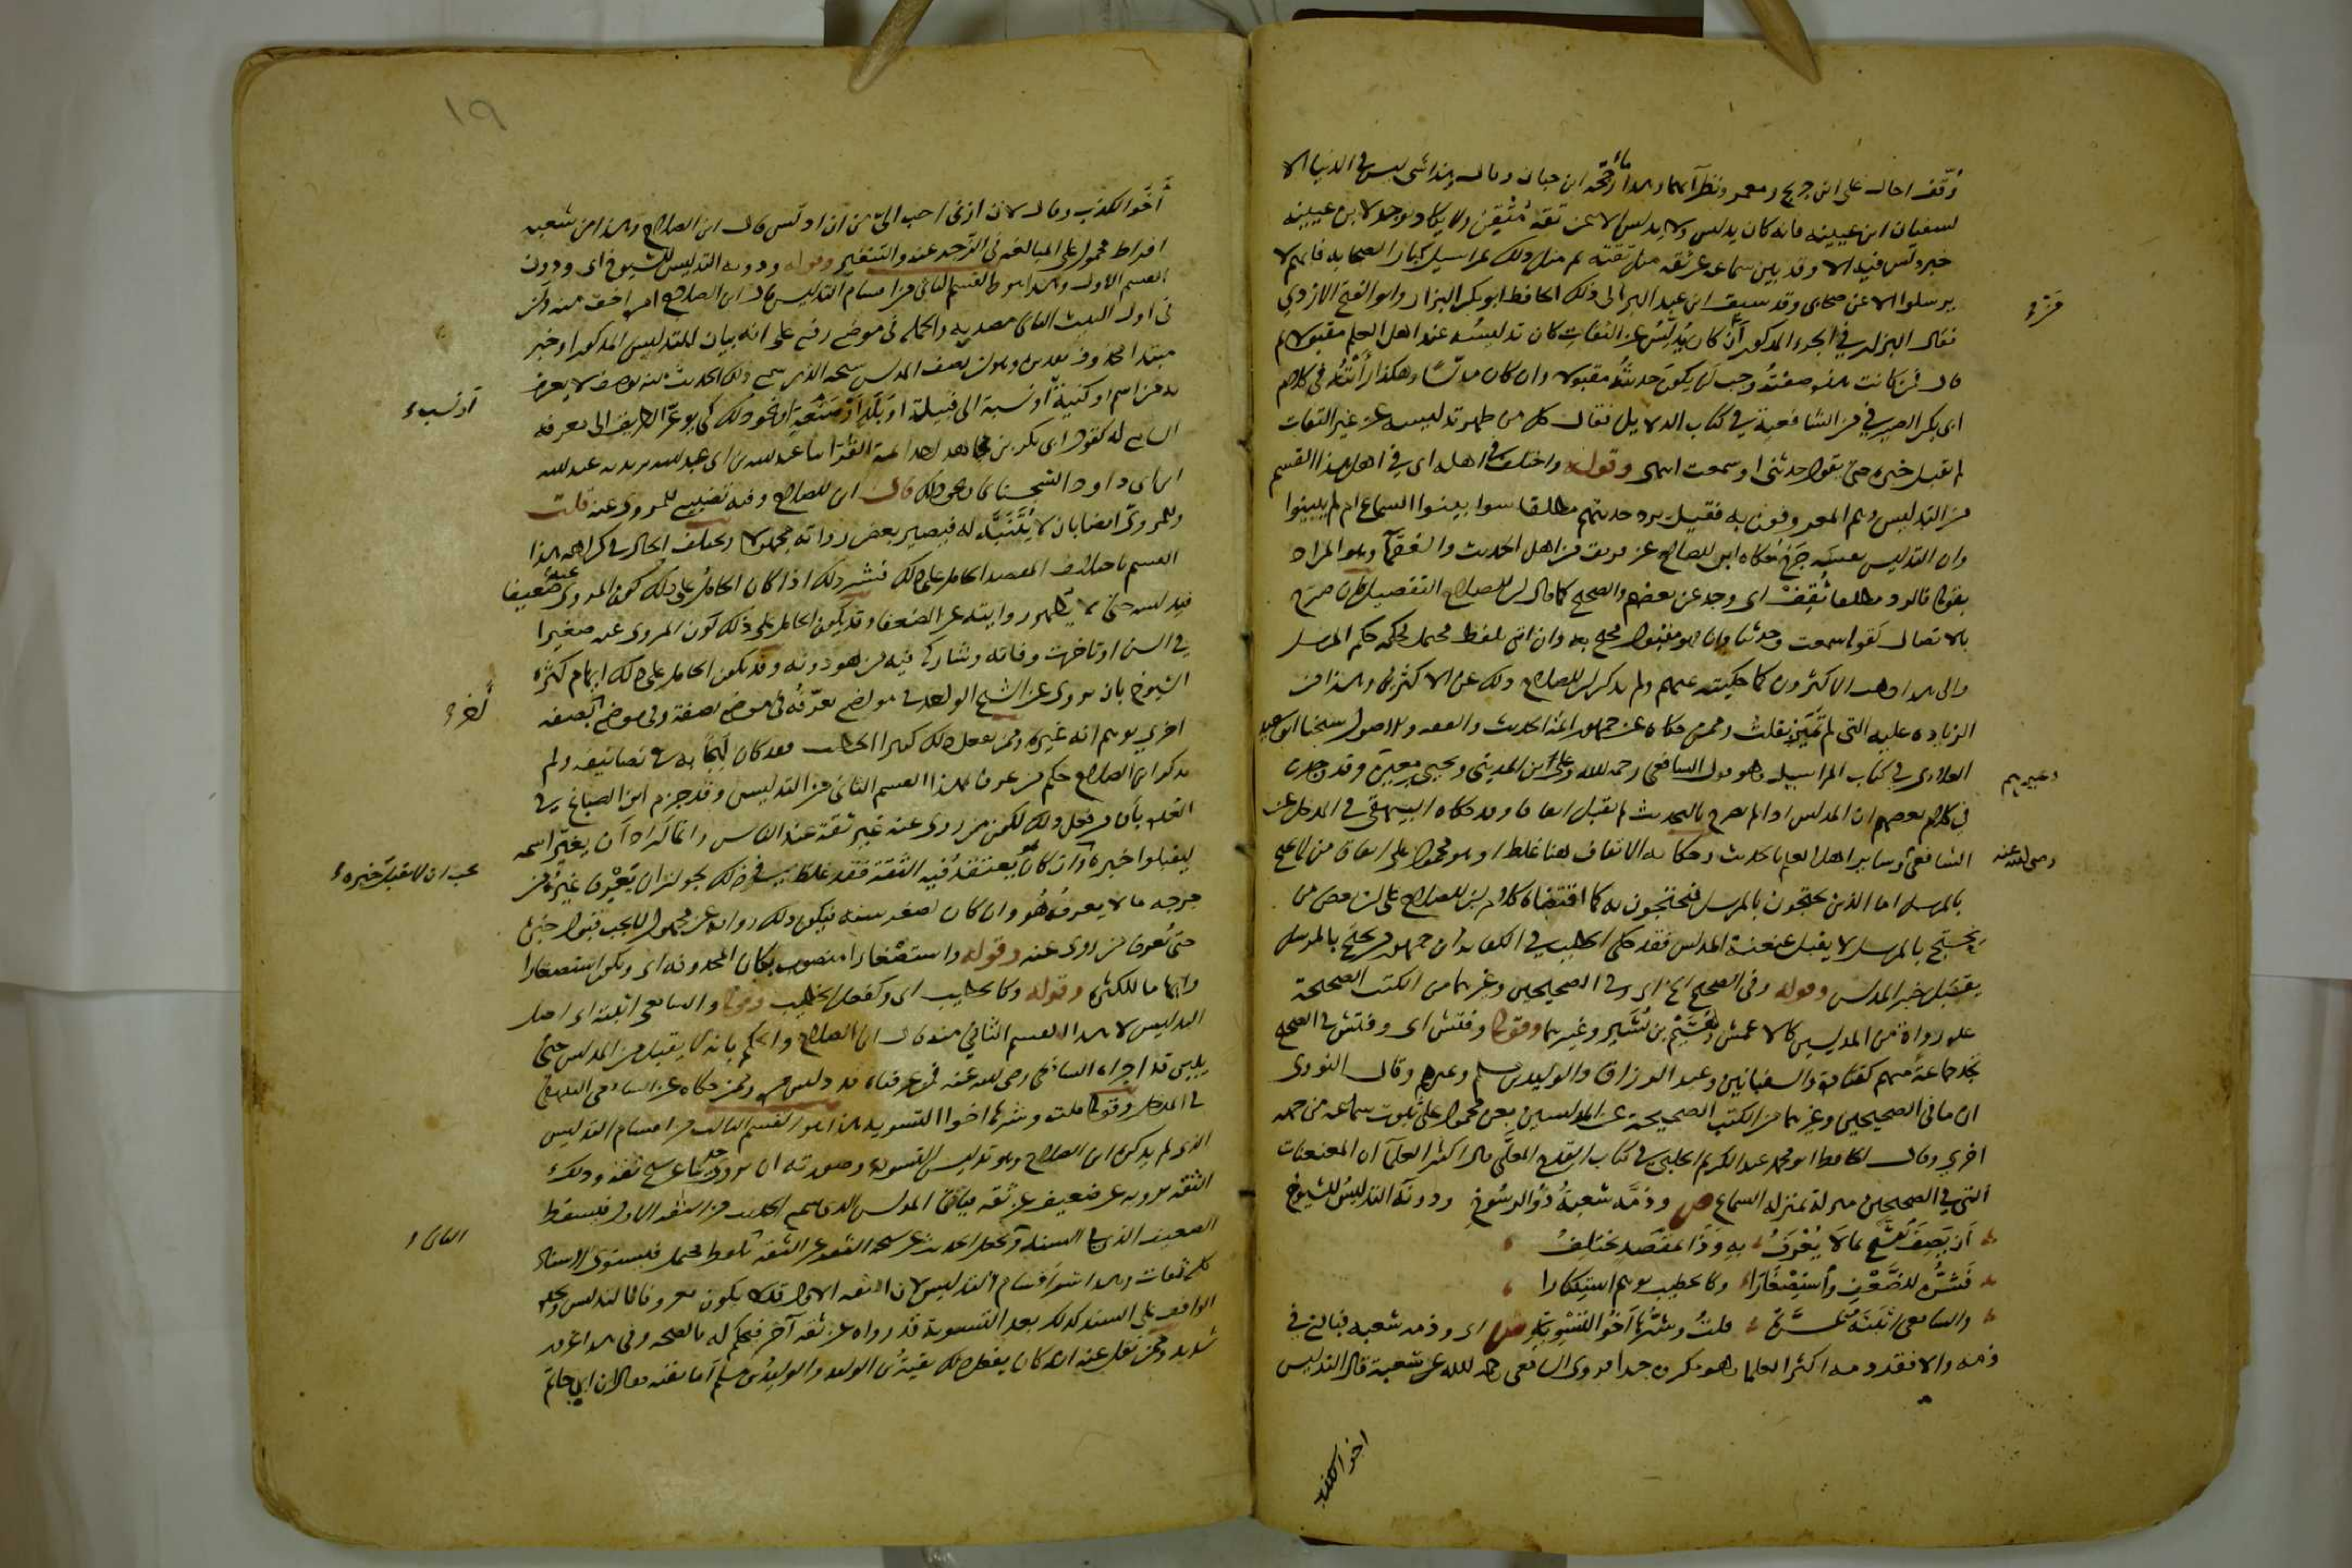 وُقِّف احال على ابن جريج ومعمر ونظرآئهما وهذا ما رجحه ابن حبان وقال وهذا شئ ليس في الدنيا الا
لسفيان ابن عيينه فانه كان يدلس ولا يدلس الا عن ثقة مُتْقِن ولا يكاد يوجد لابن عيينه
خبر دلّس فيه الا وقد بين سماعه عن ثقه مثل ثقته ثم مثل ذلك بمراسيل كبار الصحابه فانهم لا
يرسلوا الا عن صحابى وقد سبق ابن عبد البر الى ذلك الحافظ ابو بكر البزار وابو الفتح الازدي
فقال البزار في الجزء المذكور اَنَّ مَن كان يُدلِّسُ عن الثقاتِ كان تدليسُه عند اهل العلم مقبولا ثم
قال فمن كانت هذه صفتُهُ وجب اَن يكونَ حديثُهُ مقبولا وان كان مدلّسًا وهكذا رأيتُهُ في كلام
ابى بكر الصيرفي من الشافعية في كتاب الدلايل فقال كل من ظهر تدليسه عن غير الثقات
لم يقبل خبره حتى يقول حدثنى او سمعت انتهى وقوله واختلف في اهله اى في اهل هذا القسم
من التدليس وهم المعروفون به فقيل يرد حديثهم مطلقا سوا بينوا السماع ام لم يبينوا
وان التدليس نفسه جَرْح حكاه ابن الصلاح عن فريق من اهل الحديث والفقهآ وهو المراد
بقولى فالرد مطلقا ثُقِفَ اى وجد عن بعضهم والصحيح كما قال ابن الصلاح التفصيل فان صرّح
بالاتصال كقوله سمعت وحدثنا فهو مقبول محتج به وان اتى بلفظ محتمل فحكمه حكم المرسل
والى هذا ذهب الاكثرون كما حكيته عنهم ولم يذكر ابن الصلاح ذلك عن الاكثرين وهذا من
الزياده عليه التى لم تَتَميّز بقلتُ وممن حكاه عن جمهور ائمة الحديث والفقه والاصول شيخنا ابو سعيد
العلائى في كتاب المراسيل وهو قول الشافعى رحمه الله وعلى ابن المدينى ويحيى بن معين وغيرهم وقد وجدت
في كلام بعضهم ان المدلس اذا لم يصرح بالتحديث لم يقبل اتفاقا وقد حكاه البيهقى في المدخل عن
الشافعى رضى الله عنه وساير اهل العلم بالحديث وحكايه الاتفاق هنا غلط او هو محمول على اتفاق من لا يحتج
بالمرسل اما الذين يحتجون بالمرسل فيحتجون به كما اقتضاه كلام ابن الصلاح على ان بعض من
يحتج بالمرسل لا يقبل عنعنة المدلس فقد حكى الخطيب في الكفايه ان جمهور من يحتج بالمرسل
يقبل خبر المدلس وقوله وفى الصحيح الى آخره اى وفى الصحيحين وغيرهما من الكتب الصحيحة
عده رواة من المدلسين كالاعمش وهُشَيْم بن بُشَيْر وغيرهما وقولى وفتش اى وفتش في الصحيح
تجد جماعة منهم كقتادة والسفيانين وعبد الرزاق والوليد بن مسلم وغيرهم وقال النووى
ان ما في الصحيحين وغيرهما من الكتب الصحيحة عن المدلسين بعن محمول على ثبوت سماعه من جهه
اخرى وقال الحافظ ابو محمد عبد الكريم الحلبى في كتاب القدح المعلّى قال اكثر العلمآ ان المعنعنات
التي في الصحيحين منزله بمنزله السماع ص وذمَّه شعبةُ ذُو الرسُوخِ ودونَهُ التدليسُ للشيوخِ
اَن يَصِفَ الشيخَ بمَا لَا يُعْرَفُ به وَذَا بمقصَدٍ يختلِفُ
فَشرُّه للضَّعْفِ واستِصْغَارَا وكالخطيبِ يوهم استكثارا
والشافعى اثبتَه بمَرَّةِ قلتُ وشَرُّهَا اَخُو التَّسْوِيةِ ش اى وذمه شعبه فبالغ في
ذمه والا فقد ذمه اكثر العلما وهو مكروه جدا فروى الشافعى رحمه الله عن شعبة قال التدليس
اخو الكذب
١٩
اَخُو الكذب وقال لان ازنى احب الىّ من ان ادلّس قال ابن الصلاح وهذا من شعبه
افراط محمول على المبالغه في الزجر عنه والتنفير وقوله ودونه التدليس للشيوخ اى ودون
القسم الاول وهذا هو القسم الثانى من اقسام التدليس قال ابن الصلاح امره اخف منه وان
في اول البيت الثانى مصدريه والجمله في موضع رفع على انه بيان للتدليس المذكور او خبر
مبتدا محذوف تقديره وهو ان يصف المدلس شيخه الذى سمع ذلك الحديث منه بوصف لا يعرف
به من اسم او كنيةٍ او نسبة الى قبيلة او بَلَدٍ او صنعةٍ او نحو ذلك كى يوعّر الطريق الى معرفه
السامع له كقول ابى بكر بن مجاهد احد ائمة القُرّا حدثنا عبد الله بن ابى عبد الله يريد به عبد الله
ابن ابى داود السّجستانى ونحو ذلك قال ابن الصلاح وفيه تضييع للمروى عنه قلت
وللمروىّ ايضا بان لا يُتَنَبَّه له فيصير بعض رواته مجهولا ويختلف الحال في كراهة هذا
القسم باختلاف المقصد الحامل على ذلك فشر ذلك اذا كان الحامل على ذلك كون المروى عنه ضعيفا
فيدلسه حتى لا يظهر روايته عن الضعفا وقد يكون الحامل على ذلك كون المروى عنه صغيرا
في السن او تاخرت وفاته وشاركه فيه من هو دونه وقد يكون الحامل على ذلك ايهام كثره
الشيوخ بان يروى عن الشيخ الواحد في مواضع يعرّفُه في موضع بصفة وفى موضع آخر بصفه
اخرى يوهم انه غيره وممن يفعل ذلك كثيرا الخطيب فقد كان لَهِجًا به في تصانيفه ولم
يذكر ابن الصلاح حكم من عرف بهذا القسم الثانى من التدليس وقد جزم ابن الصباغ في
العُدّه بأن من فعل ذلك لكون من روى عنه غير ثقة عند الناس وانما اراد اَن يغيّر اسمه
ليقبلوا خبره يجب ان لا يقبل خبره وان كان هو يعتقد فيه الثقة فقد غلط في ذلك لجواز ان يَعْرِف غيرُه من
جرحه ما لا يعرفُه هُو وان كان لصغر سنه فيكون ذلك روايه عن مجهول لا يجب قبول خبره
حتى يُعرف من روى عنه وقوله واستصْغارا منصوب بكان المحذوفه اى ويكون استصغارا
وايهاما للكثره وقوله وكالخطيب اى وكفعل الخطيب وقولى والشافعى اثبته اى اصل
التدليس لا هذا القسم الثانى منه قال ابن الصلاح والحكم بانه لا يقبل من المدلس حتى
يبين قد اجراه الشافعى رضى الله عنه فيمن عرفناه قد دلس مره وممن حكاه عن الشافعى البيهقى
في المدخل وقولى قلت وشرها اخوا التسويه هذا هو القسم الثالث من اقسام التدليس
الذى لم يذكره ابن الصلاح وهو تدليس التسويه وصورته ان يروى حديثا عن شيخ ثقه وذلك
الثقه يرويه عن ضعيف عن ثقه فيأتى المدلس الذى سمع الحديث من الثقه الاول فيسقط
الضعيف الذى في السند ويجعل الحديث عن شيخه الثقه عن الثقه الثانى بلفظ محتمل فيستوى الاسناد
كله ثقات وهذا شر اقسام التدليس لان الثقه الاول قد لا يكون معروفا بالتدليس ويجده
الواقف على السند كذلك بعد التسوية قد رواه عن ثقه آخر فيحكم له بالصحه وفى هذا غرور
شديد وممن نُقل عنه انه كان يفعل ذلك بقيةُ بن الوليد والوليدُ بن مسلم اَما بقيه فقال ابن ابي حاتم